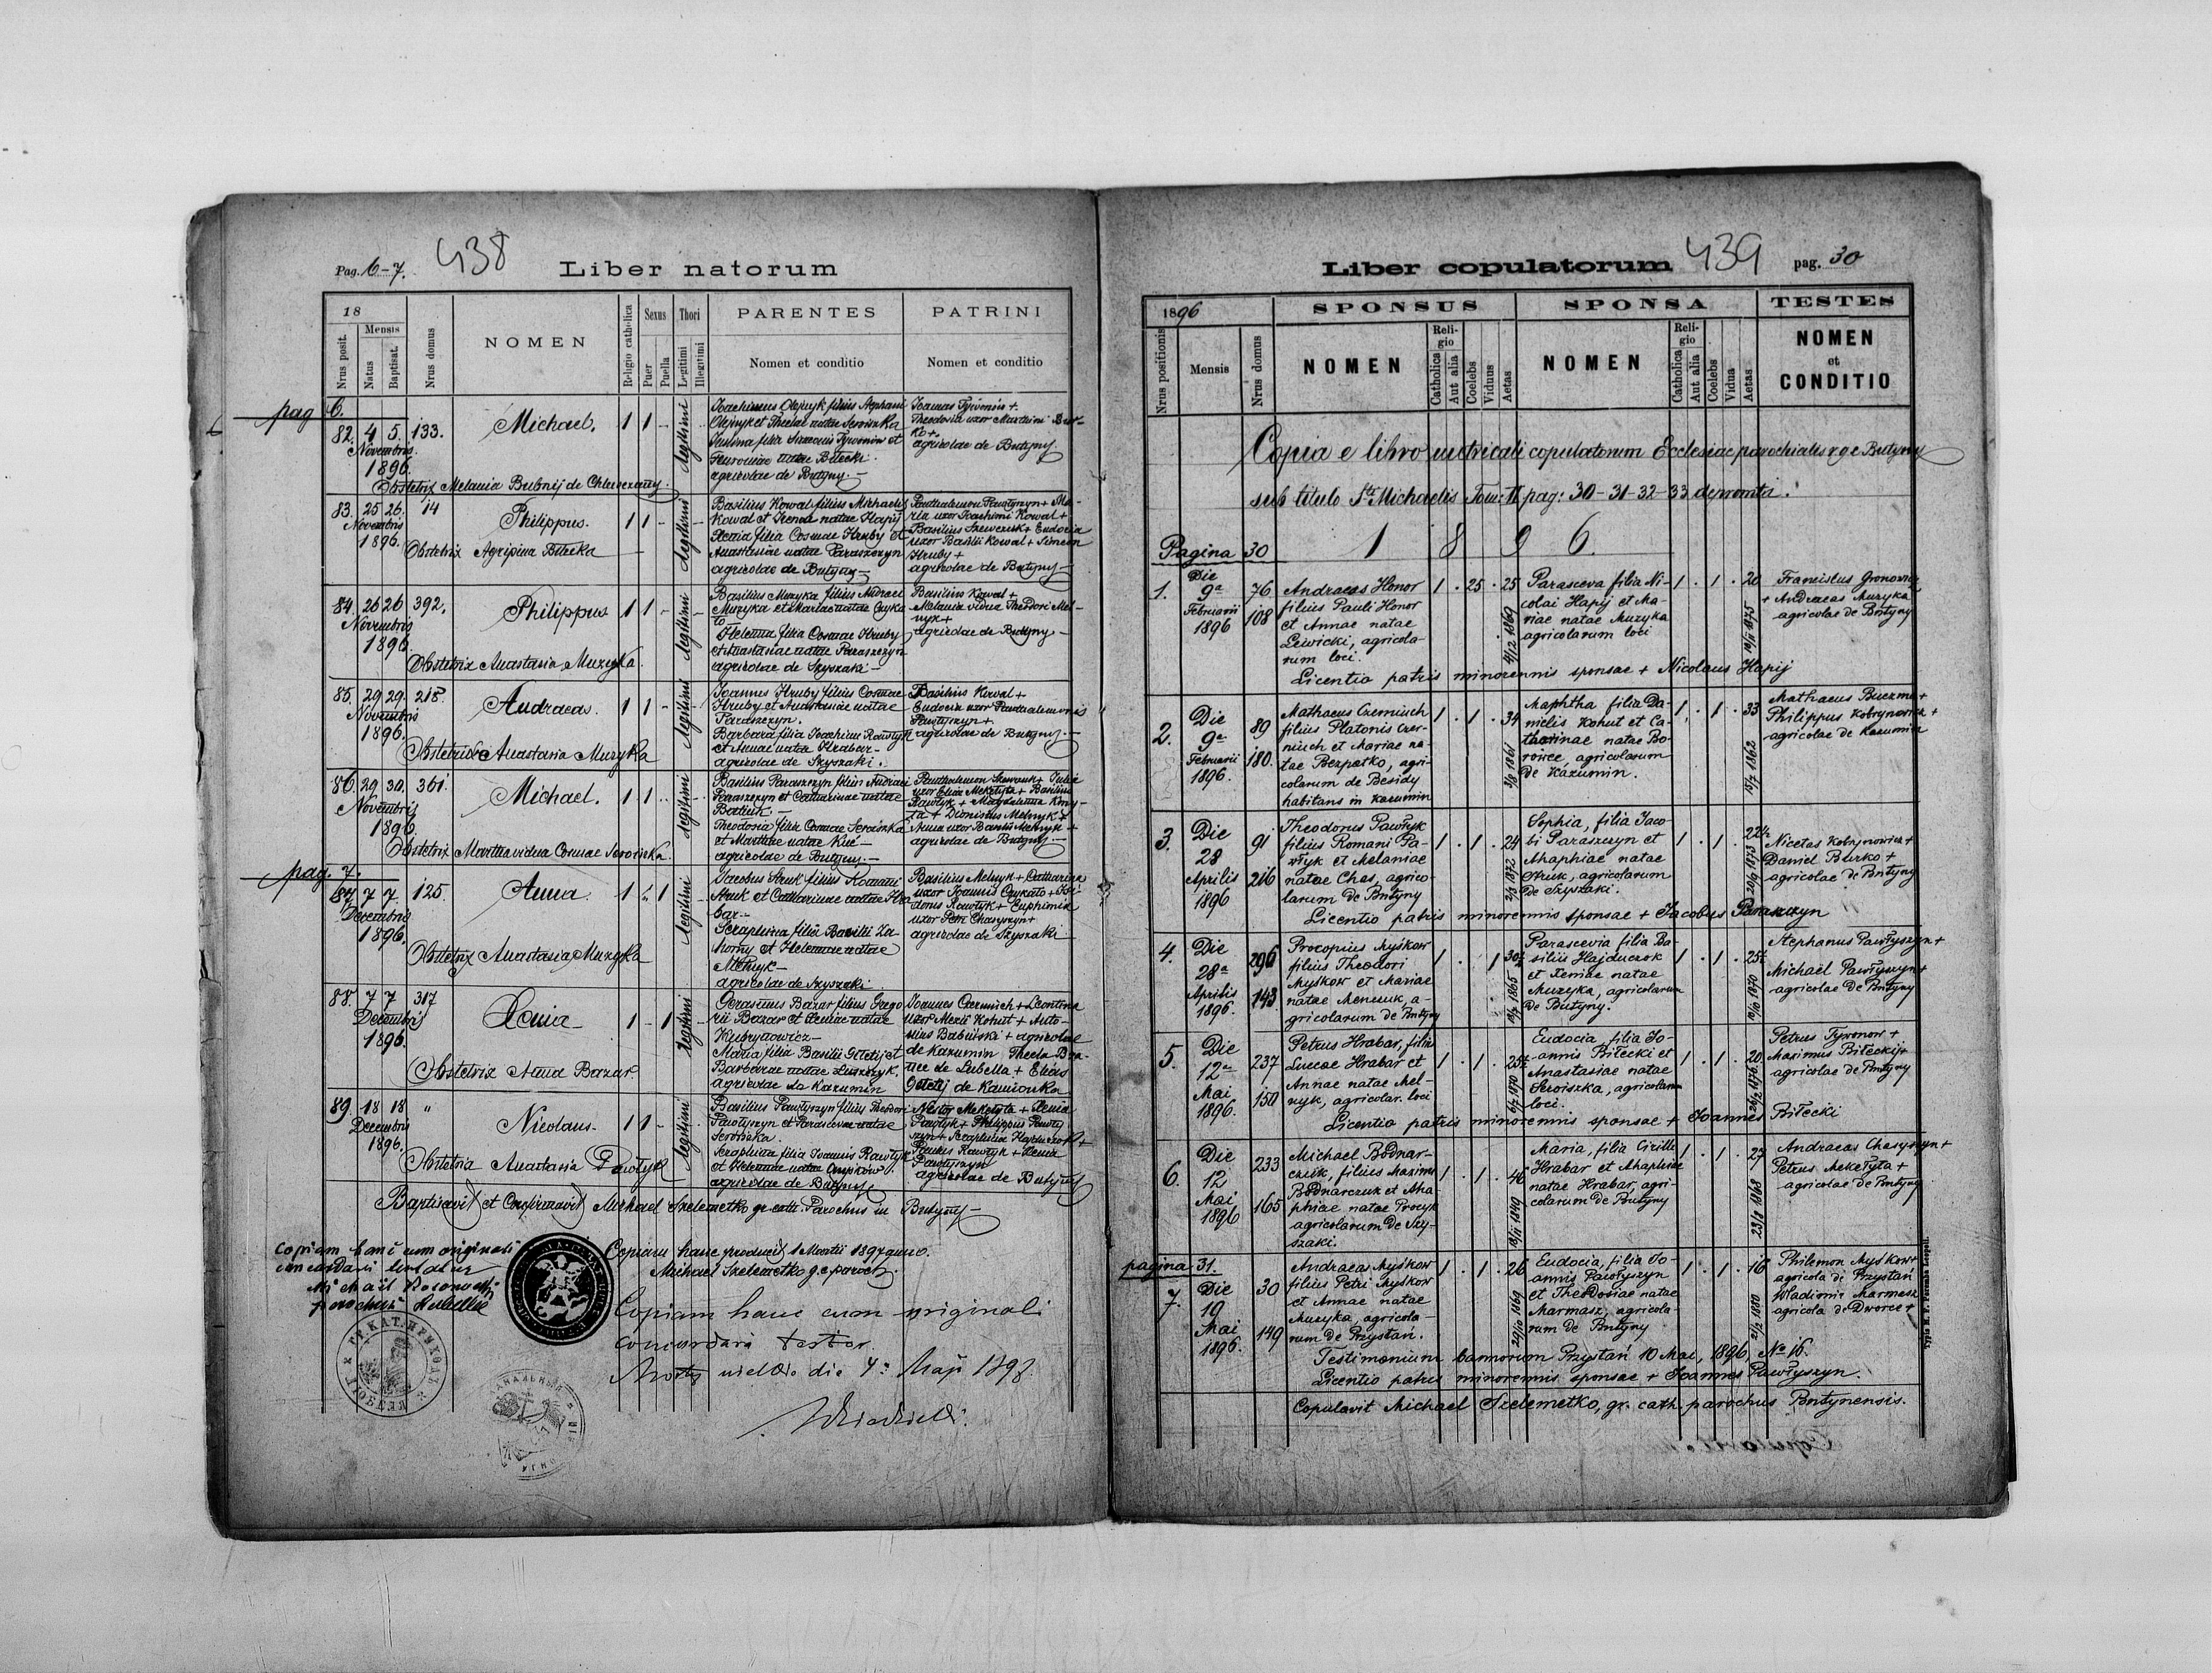 Pag. 6-7.
438
Liber natorum
18
Nrus posit.
Mensis
Natus
Baptisat.
Nrus domus
NOMEN
Religio catholica
Sexus
Puer
Puella
Thori
Legitimi
Illegitimi
PARENTES
Nomen et conditio
PATRINI
Nomen et conditio
pag 6.
82. 4 5. 133.
Novembris
1896.
Michael.
1 1 -
Legitimi
Joachimus Olejnyk filius Stephani
Olejnyk et Theclae natae Seroiszka
Justina filia Simeonis Tywoniw et
Feuroniae natae Bilecki.
agricolae de Butyny.-
Joannes Tywoniw +.
Theodosia uxor Maximi Bur-
ko +.
agricolae de Butyny.
Obstetrix Melania Bubnij de
83. 25 26. 14
Novembris
1896.
Philippus.
1 1 -
Legitimi
Basilius Kowal filius Michaelis
Kowal et Irenae natae Hapij
Xenia filia Cosmae Hruby et
Anastasiae natae Paraszczyn
agricolae de Butyny-
Panthaleimon Pawłyszyn + Ma-
ria uxor Joachimi Kowal +
Basilius Szewczuk + Eudocia
uxor Basilii Kowal + Simeon
Hruby +
agricolae de Butyny-
Obstetrix Agripina Bilecka
84. 26 26 392.
Novembris
1896.
Philippus
1 1 -
Legitimi
Basilius Muzyka filius Andreae
Muzyka et Martae natae Cayka-
to
Helenna filia Cosmae Hruby
et Anastasiae natae Paraszczyn
agricolae de Szyszaki-
Basilius Kowal +
Melania vidua Theodori Mel-
nyk +
agricolae de Butyny-
Obstetrix Anastasia Muzyka.
85. 29 29. 218.
Novembris
1896.
Andraeas.
1 1 -
Legitimi
Joannes Hruby filius Cosmae
Hruby et Anastasiae natae
Paraszczyn.
Barbara filia Joachimi Rawłyk
et Annae natae Hrabar-
agricolae de Szyszaki.
Basilius Kowal +
Eudocia uxor Panthaleimonis
Pawłyszyn +
agricolae de Butyny.-
Obstetrix Anastasia Muzyka
86. 29 30. 361.
Novembris
1896.
Michael.
1 1
Legitimi
Basilius Paraszczyn filius Andreae
Paraszczyn et Catharinae natae
Baliuk-
Theodosia filia Cosmae Seroiszka
et Marthae natae Kuć-
agricolae de Butyny.-
Panthaleimon Szewczuk + Julia
uxor Eliae Mekełyta + Basilius
Pawłyk + Magdalenna Kony-
ta + Dionisius Melnyk +
Anna uxor Basilii Melnyk +
agricolae de Butyny.
Obstetrix Martha vidua Cosmae Seroiszka.
pag. 7.
87. 7 7. 125.
Decembris
1896.
Anna.
1 " 1
Legitimi
Jacobus Struk filius Romani
Struk et Catharinae natae Hra
bar-
Seraphina filia Basilii Za-
morny et Helennae natae
Melnyk-
agricolae de Szyszaki
Basilius Melnyk + Catharina
uxor Joannis Caykało + Isi-
dorus Rawłyk + Euphimia
uxor Petri Chasyszyn +
agricolae de Szyszaki
Obstetrix Anastasia Muzyka
88. 7 7 317
Decembris
1896.
Xenia-
1 - 1
Legitimi
Gerasimus Bazar filius Grego
rii Bazar et Xeniae natae
Kobrynowicz-
Maria filia Basilii Ostetij et
Barbarae natae Łuszczyk
agricolae de Kazumin
Joannes Czerniuch + Leontina
uxor Alexii Kohut + Anto-
nius Babulski + agricolae
de Kazumin Thecla Bra-
tiec de Lubella + Elias
Ostetij de Kamionka
Obstetrix Anna Bazar.
89. 18 18 "
Decembris
1896.
Nicolaus-
1 1 -
Legitimi
Basilius Pawłyszyn filius Theodori
Pawłyszyn et Parascevae natae
Seroiszka.
Seraphina filia Joannis Rawłyk
et Helennae natae Onyskow.
agricolae de Butyny
Nestor Mekełyta + Xenia
Pawłyk + Philippus Pawły
szyn + Seraphina Hajduczok +
Paulus Rawłyk + Xenia
Pawłyszyn
agricolae de Butyny
Obstetrix Anastasia Pawłyk
Baptisavit et Confirmavit Michael Szelemetko gr. cath. Parochus in Butyny-
Copiam hanc cum originali
concordari testatur
Michaił
parochus Lubellae
Copiam hanc produxit 1 Martii 1897 anno.
Michael Szelemetko g.c. paroch.
Copiam hanc cum originali
concordare testor
Mosty wielkie die 4. Maji 1898.
ГР.КАТ.ПРИХОД
439
Liber copulatorum
pag. 30
1896
Nrus positionis
Mensis
Nrus domus
SPONSUS
NOMEN
Religio
Catholica
Aut alia
Coelebs
Viduus
Aetas
SPONSA
NOMEN
Religio
Catholica
Aut alia
Coelebs
Vidua
Aetas
TESTES
NOMEN
et
CONDITIO
Copia e libro metricali copulatorum Ecclesiae parochialis r.g.c. Butyny
sub titulo Sti Michaelis Tom: II pag: 30-31-32-33 depromta.
Pagina 30
1 8 9 6.
1.
Die
9a
Februarii
1896
76
108
Andraeas Honor
filius Pauli Honor
et Annae natae
Lewicki, agricola-
rum loci.
1 . 25 . 25
4/12 1869
Parasceva filia Ni-
colai Hapij et Ma-
riae natae Muzyka
agricolarum loci
1 . 1 . 20
10/11 1875
Franciscus Gronowicz
+ Andraeas Muzyka
agricolae de Butyny
Licentia patris minorennis sponsae + Nicolaus Hapij
2.
Die
9a
Februarii
1896.
89
180.
Mathaeus Czerniuch
filius Platonis Czer-
niuch et Mariae na-
tae Bezpałko, agri-
colarum de Besidy
habitans in Kazumin
1 . 1 . 34
3/8 1861
Maphtha filia Da-
nielis Kohut et Ca-
tharinae natae Bo-
rowiec, agricolarum
de Kazumin.
1 . 1 . 33
15/7 1862
Mathaeus Buczma +
Philippus Kobrynowicz +
agricolae de Kazumin
3.
Die
28
Aprilis
1896
91
216
Theodorus Pawłyk
filius Romani Pa-
włyk et Melaniae
natae Chas, agrico-
larum de Butyny
1 . 1 . 24
2/3 1872
Sophia, filia Jaco-
bi Paraszczyn et
Ahaphiae natae
Struk, agricolarum
de Szyszaki.
1 . 1 . 22½
20/9 1873
Nicetas Kobrynowicz +
Daniel Burko +
agricolae de Butyny
Licentia patris minorennis sponsae + Jacobus Paraszczyn
4.
Die
28a
Aprilis
1896.
296
143
Procopius Myśkow
filius Theodori
Myśkow et Mariae
natae Menczuk, a-
gricolarum de Butyny
1 . 1 30½
10/7 1865
Parascevia filia Ba
silii Hajduczok
et Xeniae natae
Muzyka, agricolarum
de Butyny.
1 . 1 . 25½
10/10 1870
Stephanus Pawłyszyn +
Michaël Pawłyszyn +
agricolae de Butyny
5.
Die
12a
Mai
1896.
237
150
Petrus Hrabar, filius
Luccae Hrabar et
Annae natae Mel-
nyk, agricolar. loci
1 . 1 . 25½
6/7 1870
Eudocia filia Jo-
annis Biłecki et
Anastasiae natae
Seroiszka, agricolarum
loci.
1 . 1 . 20
26/2 1876
Petrus Tywonow +
Maximus Biłeckij +
agricolae de Butyny
Licentia patris minorennis sponsae + Joannes Biłecki
6.
Die
12
Mai
1896
233
165
Michael Bodnar-
czuk, filius Maximi
Bodnarczuk et Aha-
phiae natae Procyk
agricolarum de Szy-
szaki.
1 . 1 . 46
18/11 1849
Maria, filia Cirilli
Hrabar et Ahaphiae
natae Hrabar, agri-
colarum de Butyny
1 . 1 . 27
23/8 1868
Andraeas Chasyszyn +
Petrus Mekełyta +
agricolae de Butyny
pagina 31.
7.
Die
19
Mai
1896.
30
149
Andraeas Myśkow
filius Petri Myśkow
et Annae natae
Muzyka, agricola-
rum de Przystań.
1 . 1 . 26
29/10 1869
Eudocia, filia Jo-
annis Pawłyszyn
et Theodosiae natae
Marmasz, agricola-
rum de Butyny
1 . 1 . 16
21/2 1880
Philemon Myśkow +
agricola de Przystań
Wladimir Marmasz
agricola de Dworce +
Testimonium bannorum Przystań 10 Mai, 1896, No 16.
Licentia patris minorennis sponsae + Joannes Pawłyszyn.
Copulavit Michael Szelemetko, gr. cath. parochus Butynensis.